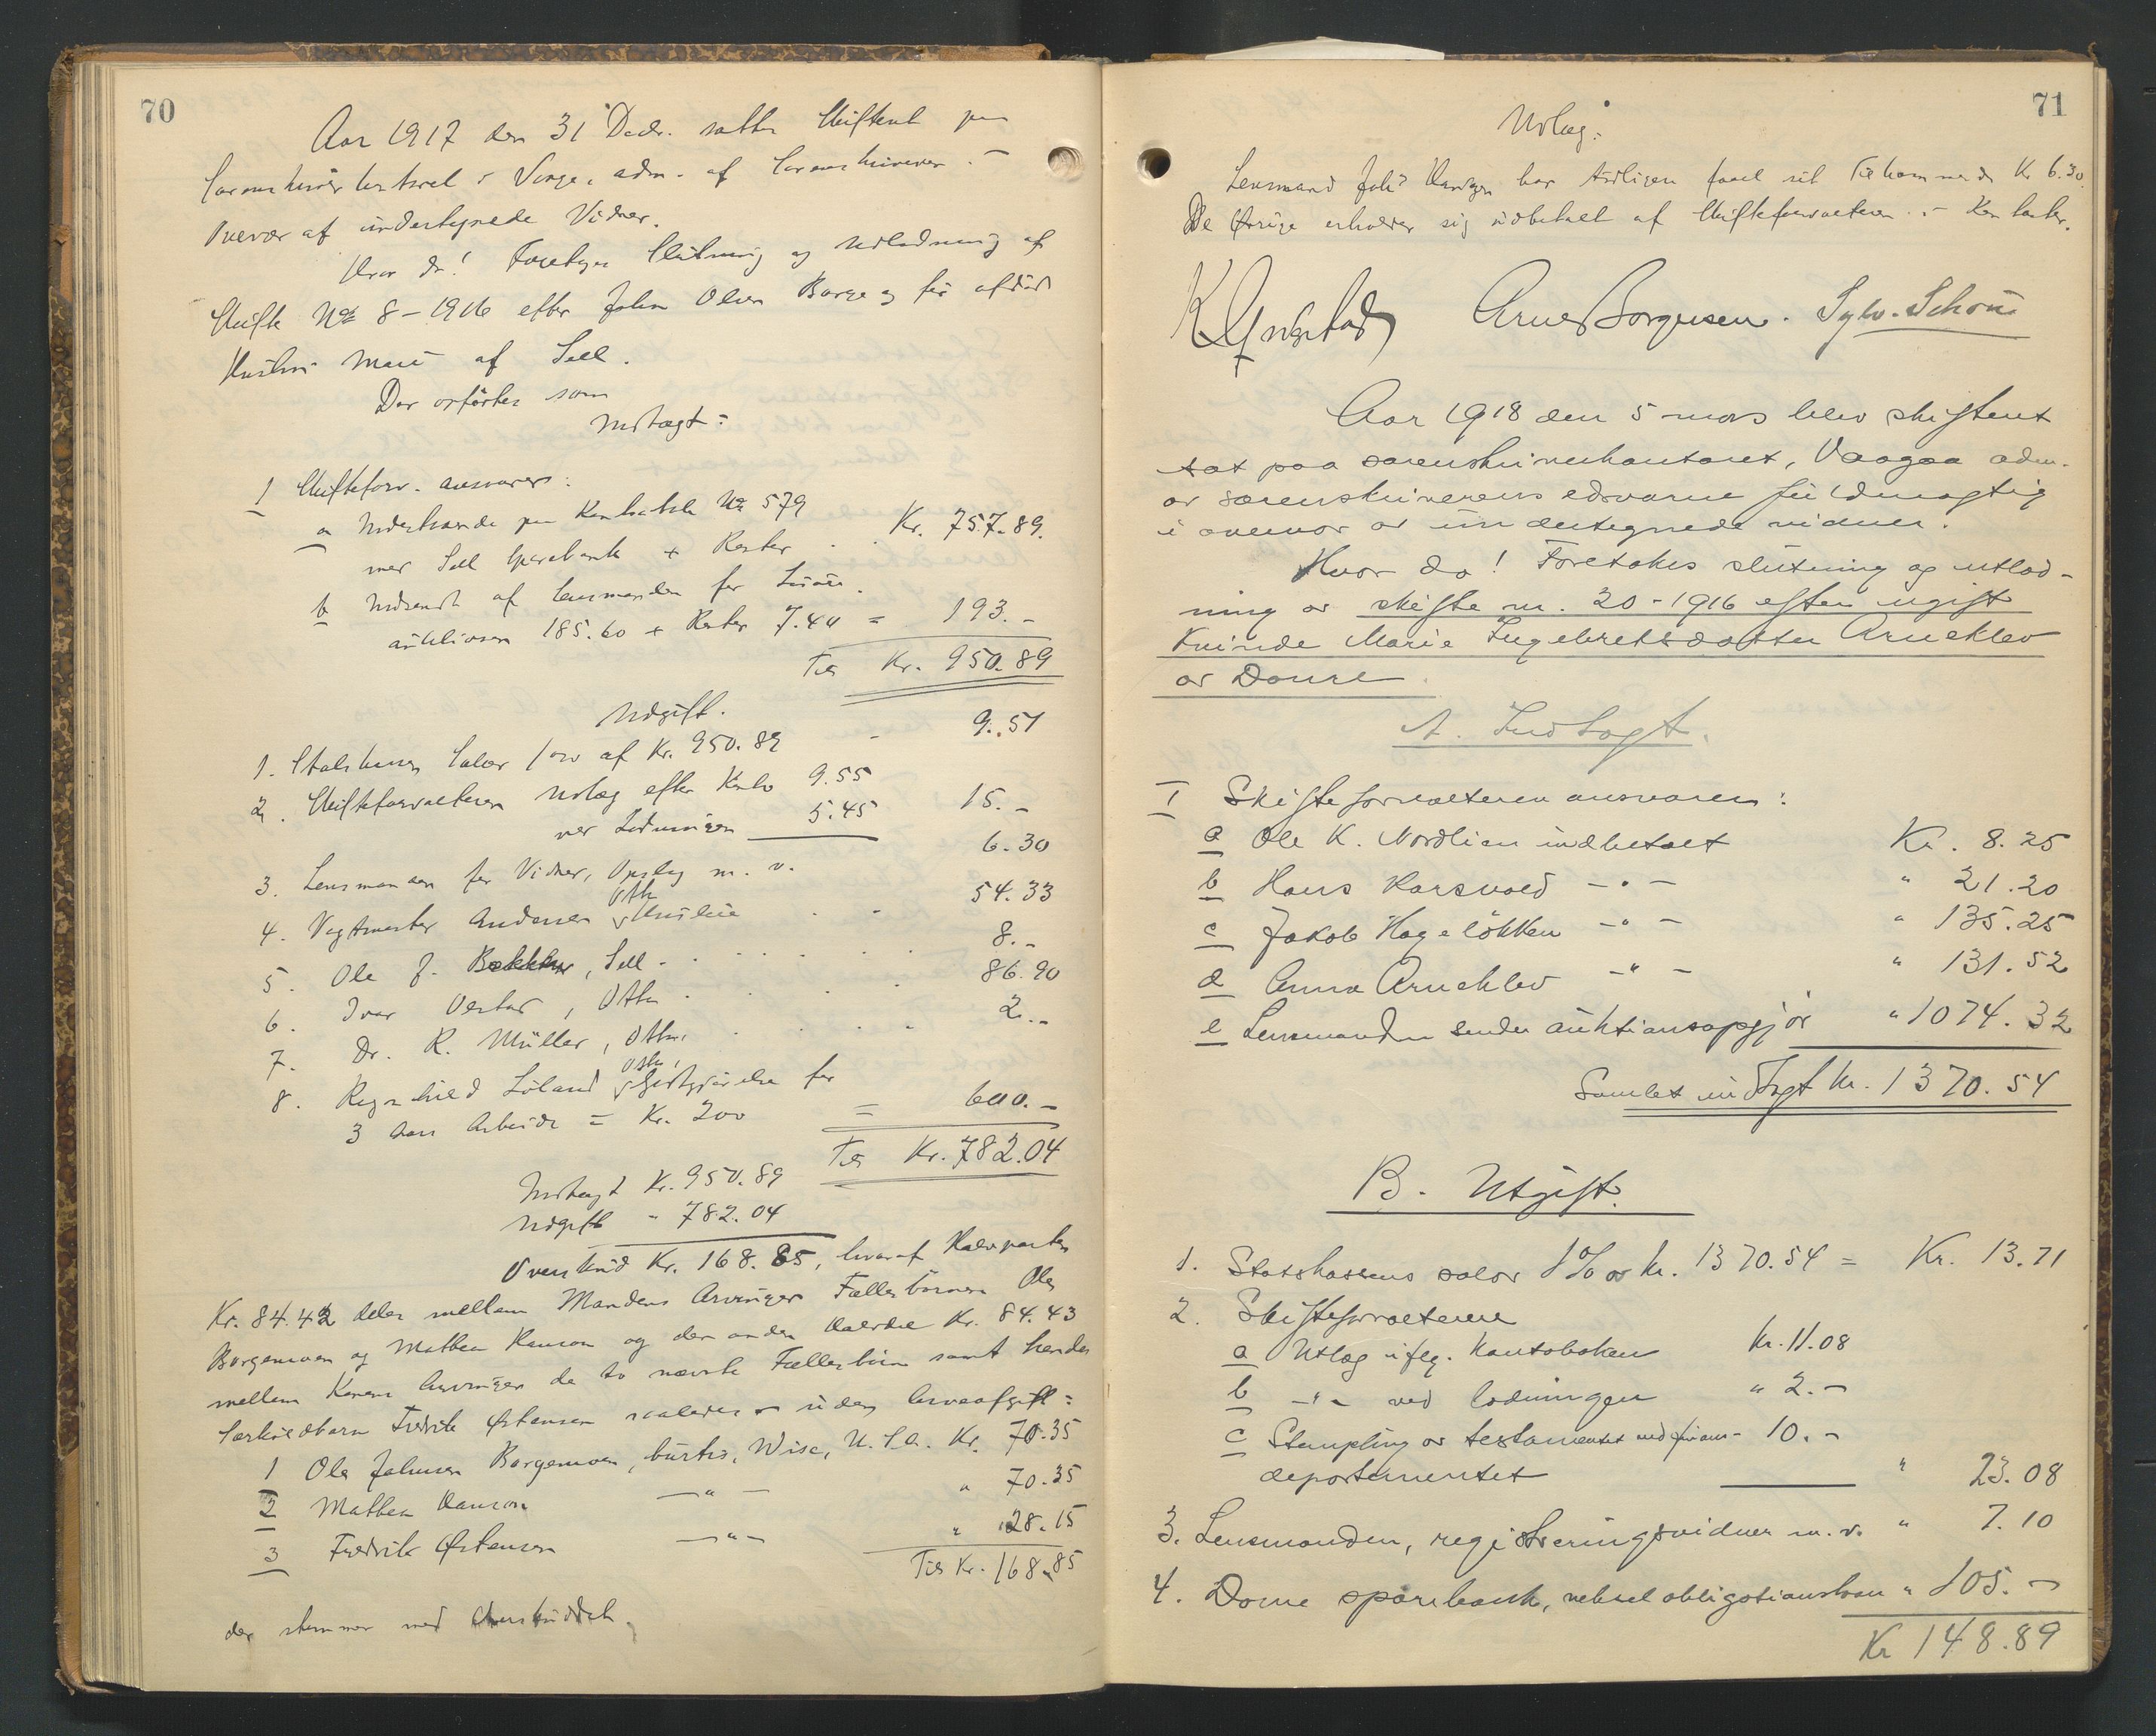 70
Aar 1917 den 31 Decbr. sattes Skifteret paa
Sorenskriverkontoret i Vaage, adm. af Sorenskriveren i
Overvær af undertegnede Vidner.
Hvor da! Foretoges Slutning og Udlodning af
Skifte No 8 - 1916 efter Johan Olsen Borge og før afdøde
Hustru Mari af Sell.
Der opførtes som
Indtægt:
1 Skifteforv. ansvarer:
a Indestaaende paa Kontrabok No 579
med Sell Sparebank + Renter . . Kr. 757.89.
b Indsendt af Lensmanden for
auktionen 185.60 + Renter 7.40 = 193.-
Tils Kr. 950.89
Udgift.
1. Statskassen Salær 1% af Kr. 950.89 - 9.51
2. Skifteforvalteren Udlæg efter Konto 9.55
ved Lodningen 5.45 15.-
3. Lensmanden for Vidner, Opslag m. v. 6.30
4. Vagtmester Andersen Otta . - 54.33
5. Ole J. Bækken, Sell . . . . 8.-
6. Ivar , Otta . . . 86.90
7. Dr. R. Müller, Otta . . . . 2.-
8. Ragnhild Løland Otta, Godtgjørelse for
3 Aars Arbeide = Kr. 200 = 600.-
Tils Kr. 782.04
Indtægt Kr. 950.89
Udgift " 782.04
Overskud Kr. 168.85, hvoraf Halvparten
Kr. 84.42 deles mellem Mandens Arvinger Fællesbørnene Ole
Borgemoen og Mathea Hanson og den anden Halvdel Kr. 84.43
mellem Konens Arvinger de to nævnte Fællesbørn samt hendes
Særkuldbarn Fredrik Østensen saaledes uden Arveafgift:
1 Ole Johnsen Borgemoen, , Wisc, U.S.A. Kr. 70.35
2 Mathea Hanson -"- " 70.35
3 Fredrik Østensen -"- " 28.15
Tils Kr. 168.85
der stemmer med Overskuddet.
71
Udlæg:
Lensmand Joh? har tidligere faaet sit Tilkommende Kr 6.30.
De Øvrige erholder sig udbetalt af Skifteforvalteren.
Arne Borgersen. Sylv. Schou
Aar 1918 den 5 mars blev skifteret
sat paa sorenskriverkontoret, Vaagaa adm.
av sorenskriverens edsvorne fuldmægtig
i overvær av undertegnede vidner.
Hvor da! Foretokes slutning og utlod-
ning av skifte nr. 20-1916 efter ugift
Kvinde Marie Ingebretsdatter Arneklev
av Dovre
A. Indtægt.
I Skifteforvalteren ansvarer:
a Ole K. Nordlien indbetalt Kr. 8.25
b Hans Korsvold -"- " 21.20
c Jakob Hageløkken -"- " 135.25
d Anna Arneklev -"- " 131.52
e Lensmanden sender auktionsopgjør " 1074.32
Samlet indtægt kr. 1370.54
B. Utgift.
1. Statskassens salær 1% av kr. 1370.54 = Kr. 13.71
2. Skifteforvalteren
a Utlæg iflg. Kontoboken kr. 11.08
b -"- ved lodningen " 2.-
c Stempling av testamentet ved finans- 10.-
departementet " 23.08
3. Lensmanden, registreringsvidner m. v. " 7.10
4. Dovre sparebank, veksel obligationslaan " 105.-
Kr 148.89